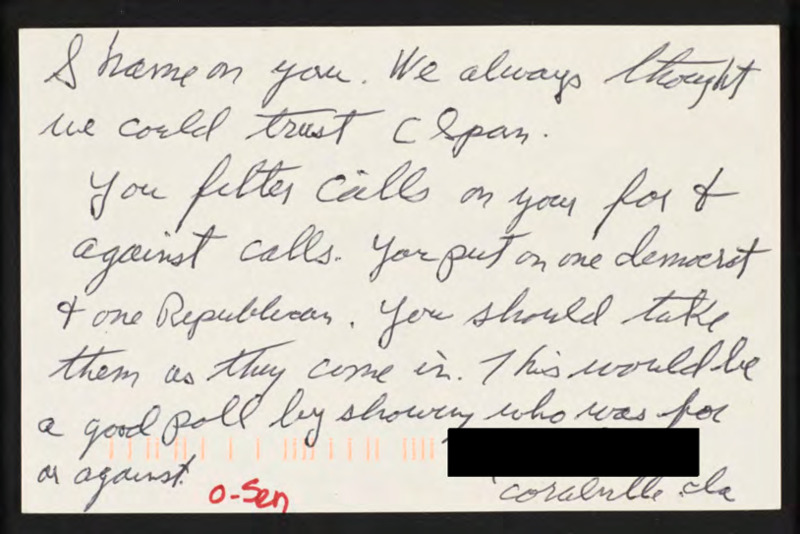 Shame on you. We always thought
we could trust C Span.
You filter calls on your for &
against calls. You put on one democrat
& one Republican. You should take
them as they come in. This would be
a good poll by showing who was for
or against.
O-Sen
Coralville Ia